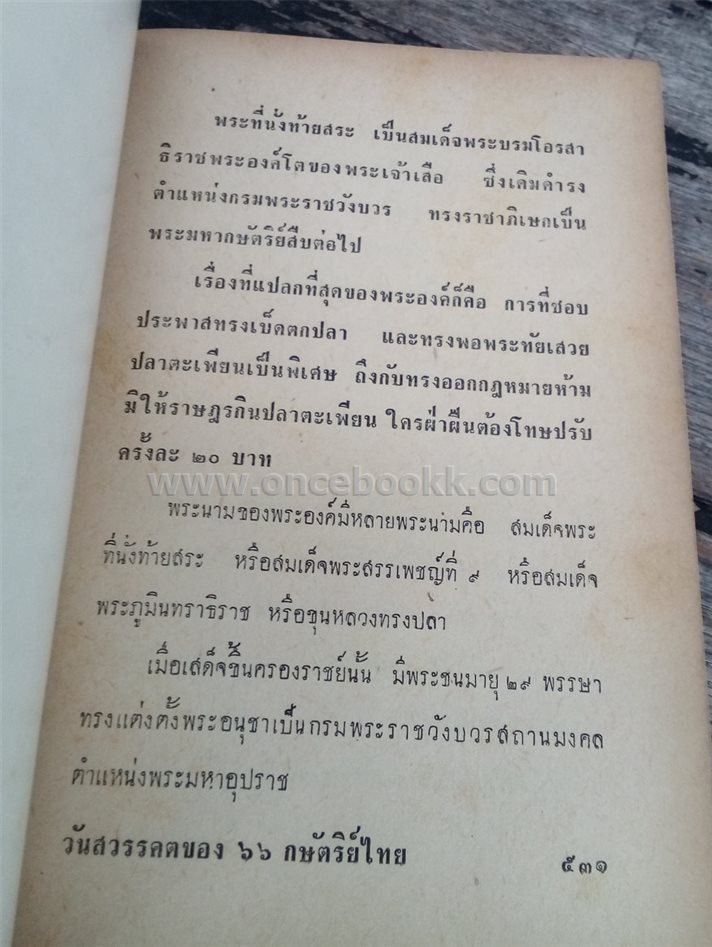 พระที่นั่งท้ายสระ เป็นสมเด็จพระบรมโอรสา
ธิราชพระองค์โตของพระเจ้าเสือ ซึ่งเดิมดำรง
ตำแหน่งกรมพระราชวังบวร ทรงราชาภิเษกเป็น
พระมหากษัตริย์สืบต่อไป
เรื่องที่แปลกที่สุดของพระองค์ก็คือ การที่ชอบ
ประพาสทรงเบ็ดตกปลา และทรงพอพระทัยเสวย
ปลาตะเพียนเป็นพิเศษ ถึงกับทรงออกกฎหมายห้าม
มิให้ราษฎรกินปลาตะเพียน ใครฝ่าฝืนต้องโทษปรับ
ครั้งละ ๒๐ บาท
www.oncebookk.com
พระนามของพระองค์มีหลายพระนามคือ สมเด็จพระ
ที่นั่งท้ายสระ หรือสมเด็จพระสรรเพชญ์ที่ ๙ หรือสมเด็จ
พระภูมินทราธิราช หรือขุนหลวงทรงปลา
เมื่อเสด็จขึ้นครองราชย์นั้น มีพระชนมายุ ๒๙ พรรษา
ทรงแต่งตั้งพระอนุชาเป็นกรมพระราชวังบวรสถานมงคล
ตำแหน่งพระมหาอุปราช
วันสวรรคตของ ๖๖ กษัตริย์ไทย ๕๓๑